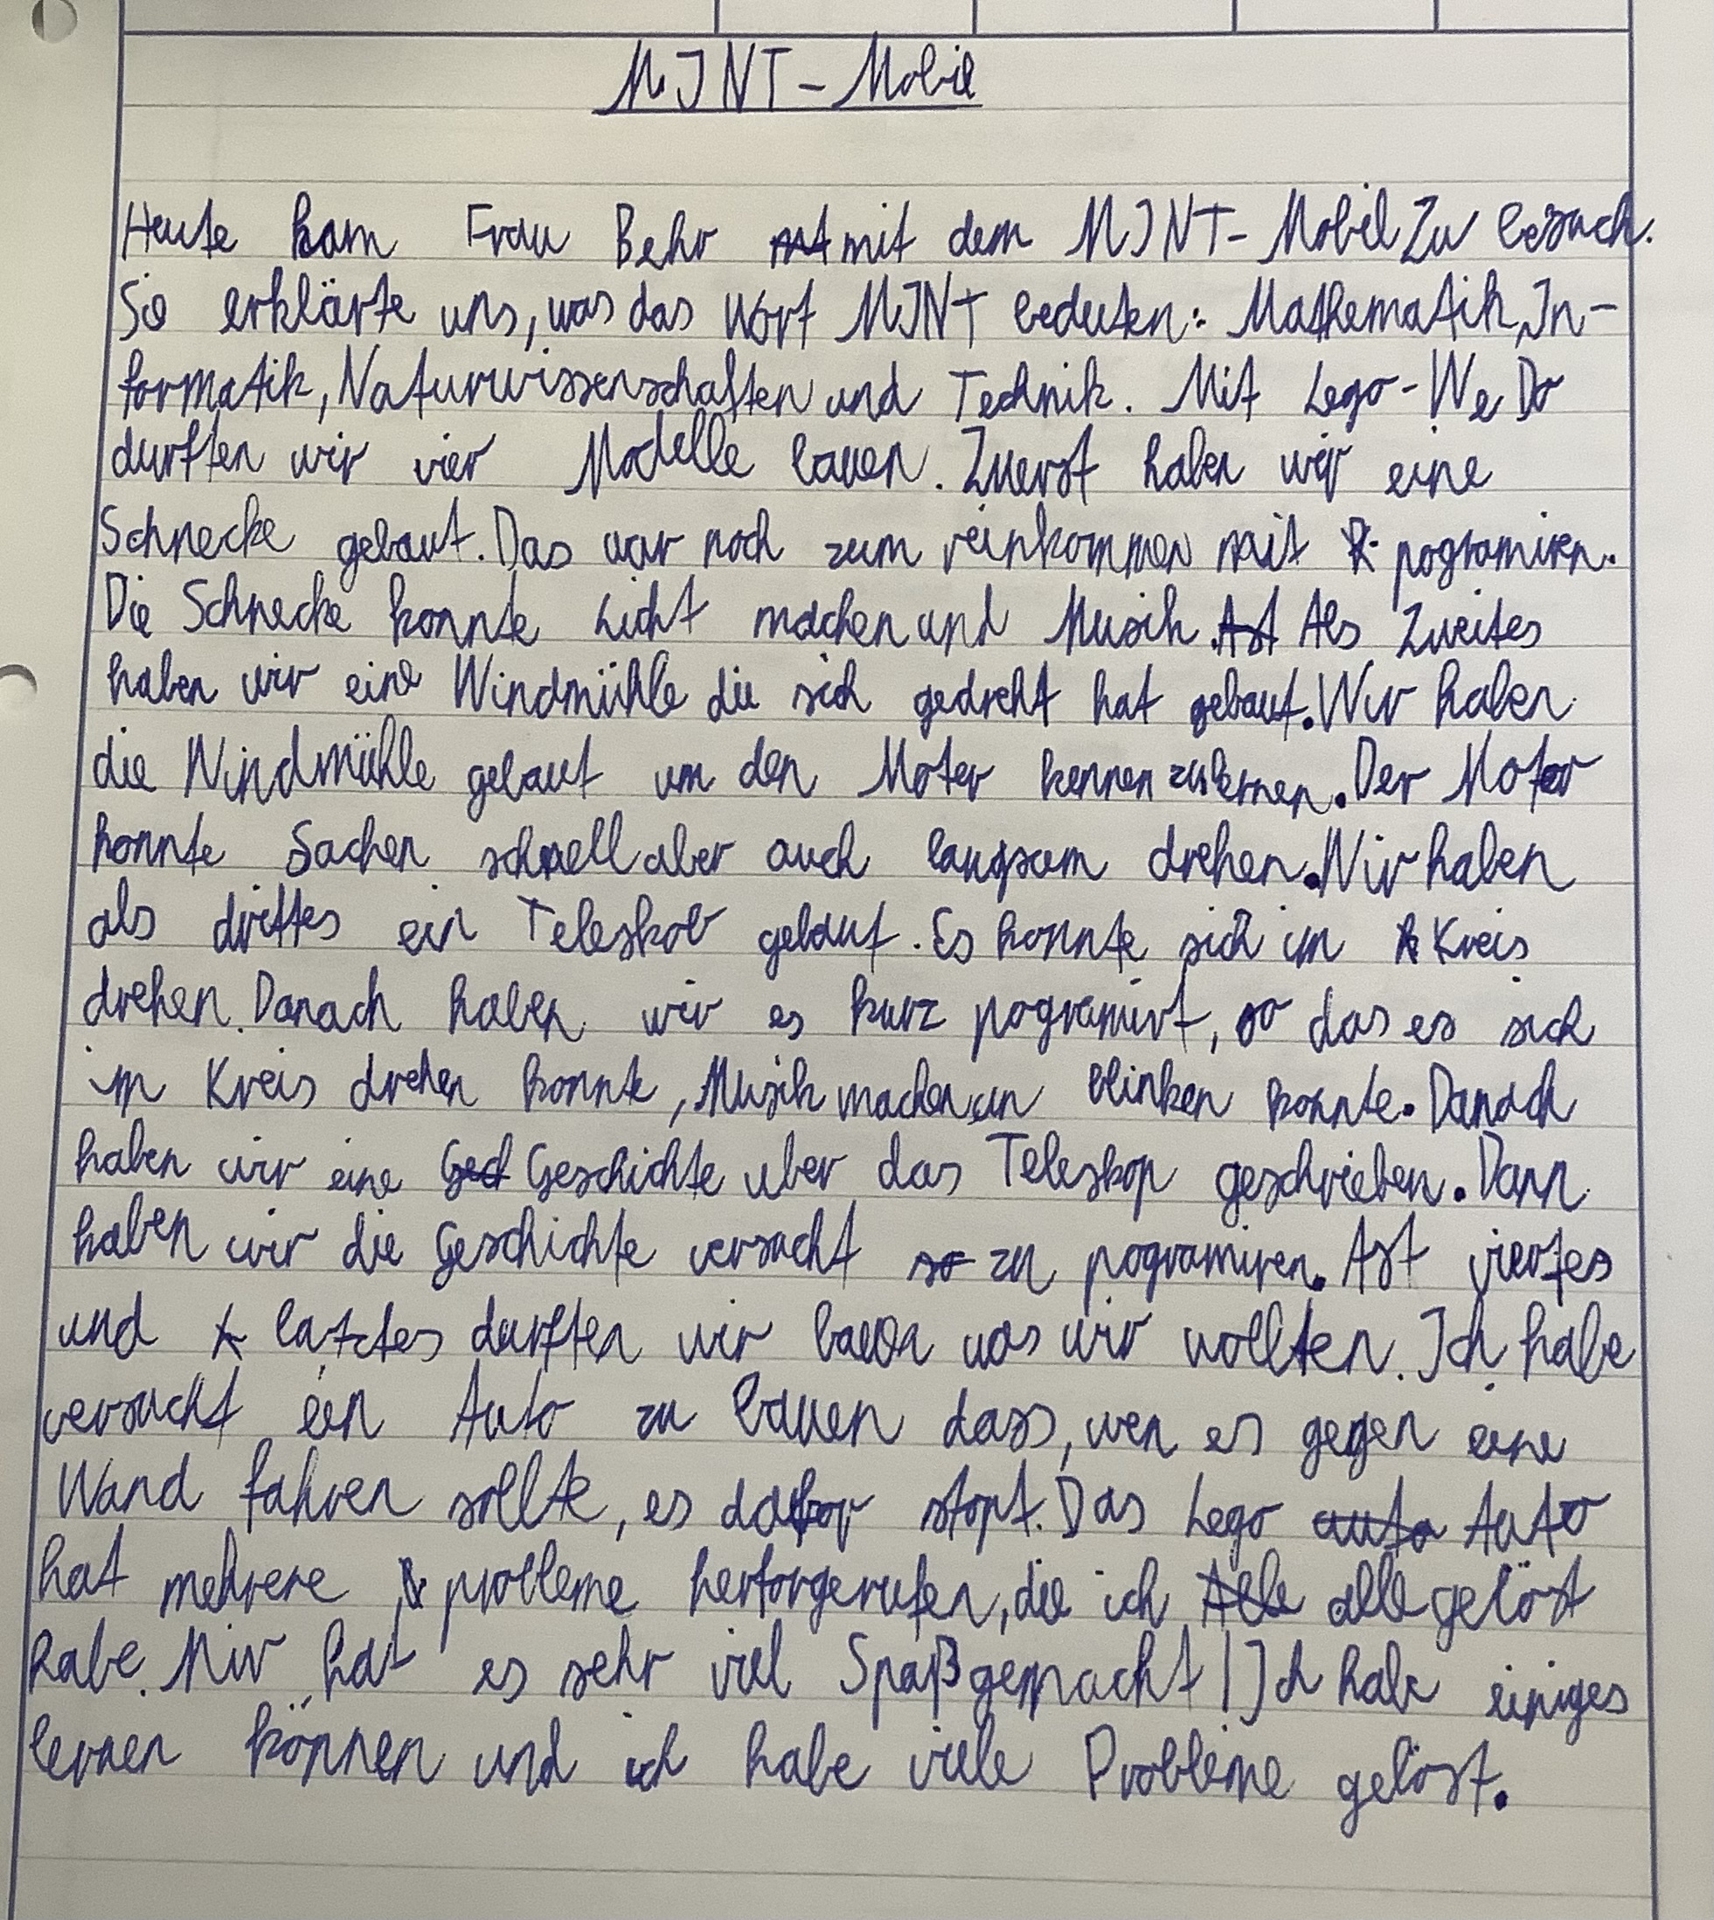 MINT-Mobil
Heute kam Frau Behr mit dem MINT-Mobil Zu besuch.
Sie erklärte uns, was das Wort MINT beduten: Mathematik, In-
formatik, Naturwissenschaften und Technik. Mit Lego-We Do
durften wir vier Modelle bauen. Zuerst haben wir eine
Schnecke gebaut. Das war noch zum reinkommen mit pogramiren.
Die Schnecke konnte Licht machen und Musik. Als Zweites
haben wir eine Windmühle die sich gedreht hat gebaut. Wir haben
die Windmühle gebaut um den Moter kennen zu lernen. Der Motor
konnte Sachen schnell aber auch langsam drehen. Wir haben
als drittes ein Teleskob gebaut. Es konnte sich im Kreis
drehen. Danach haben wir es kurz pogramirt, so das es sich
im Kreis drehen konnte, Musik machen un blinken konnte. Danach
haben wir eine Geschichte uber das Teleskop geschrieben. Dann
haben wir die Geschichte versucht zu pogramiren. Ast viertes
und latztes durften wir bauen was wir wollten. Ich habe
versucht ein Auto zu bauen dass, wen es gegen eine
Wand fahren sollte, es dafor stopt. Das Lego Auto
hat mehrere probleme herforgerufen, die ich alle gelöst
habe. Mir hat es sehr viel Spaß gemacht! Ich habe einiges
lernen können und ich habe viele Probleme gelöst.